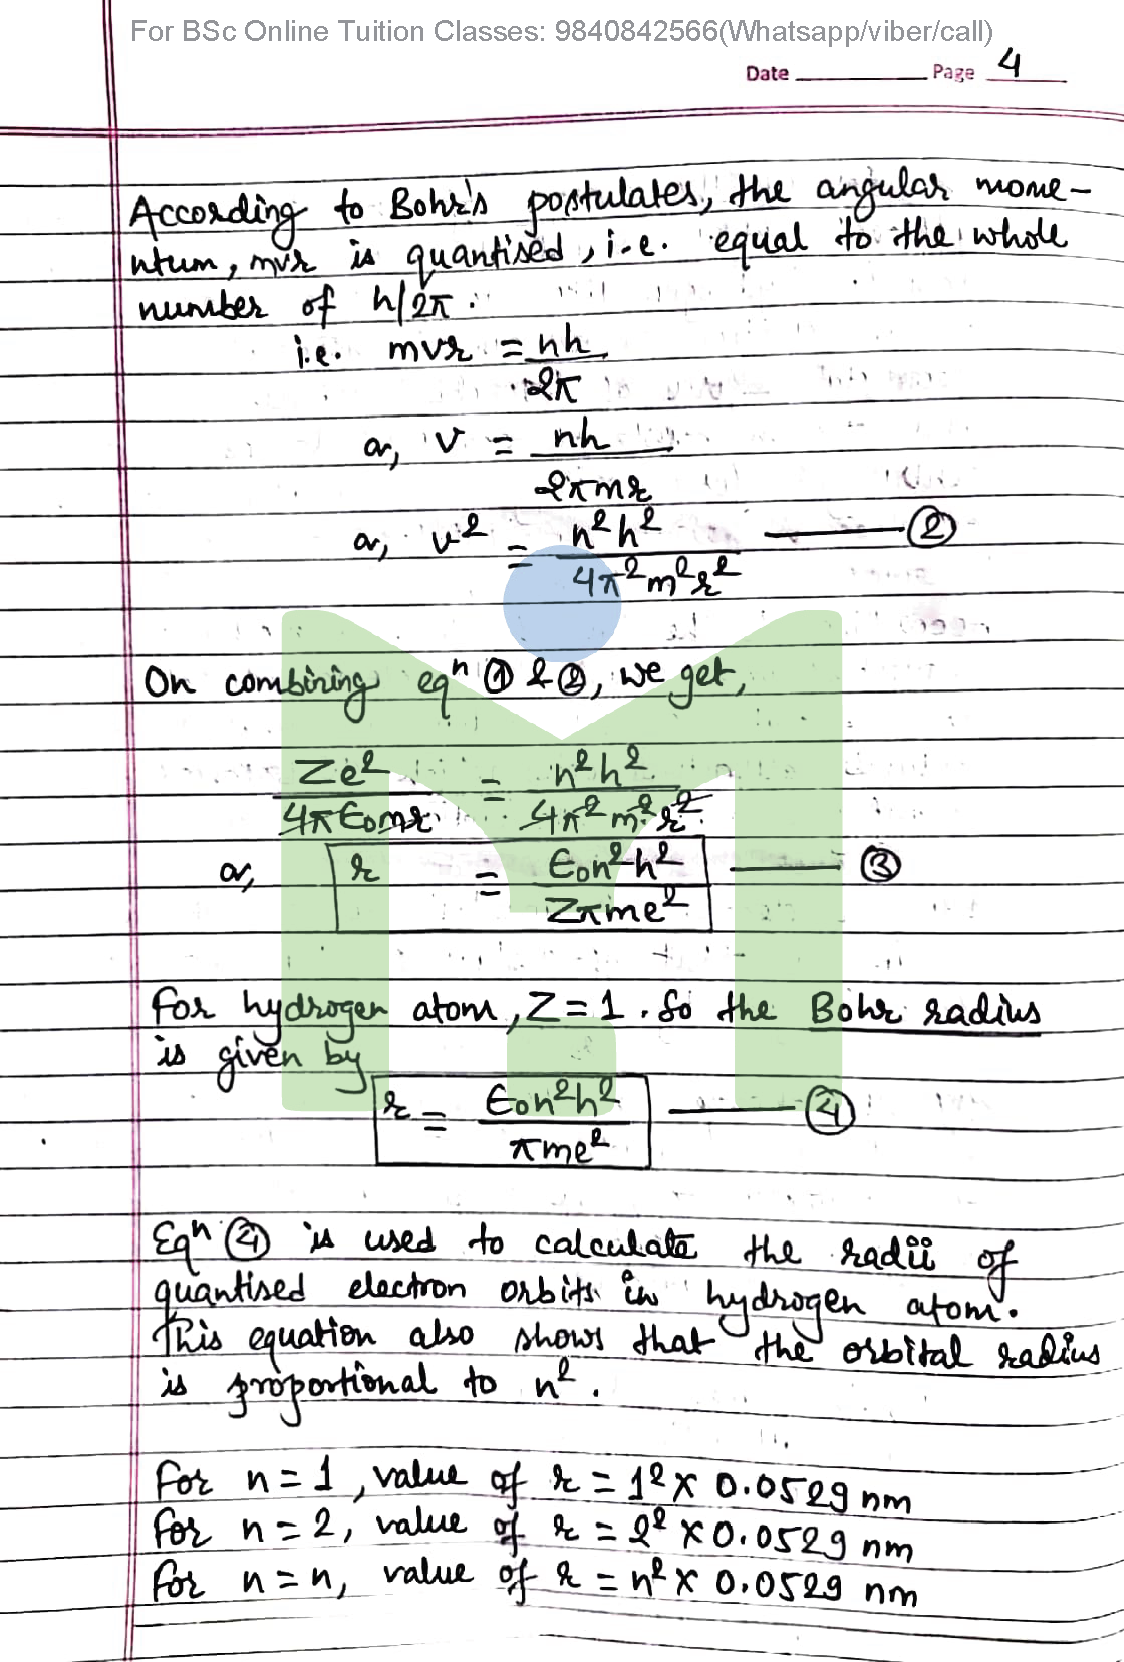 For BSc Online Tuition Classes: 9840842566(Whatsapp/viber/call)
Date Page 4
According to Bohr's postulates, the angular mome-
ntum, mvr is quantised, i.e. equal to the whole
number of h/2π.
i.e. mvr = nh
2π
or, v = nh
2πmr
or, v² = n²h² ②
4π²m²r²
On combining eqⁿ ① & ②, we get,
Ze² = n²h²
4πϵ₀mr 4π²m²r²
or, r = ϵ₀n²h² ③
Zπme²
For hydrogen atom, Z = 1. So the Bohr radius
is given by
r = ϵ₀n²h² ④
πme²
Eqⁿ ④ is used to calculate the radii of
quantised electron orbits in hydrogen atom.
This equation also shows that the orbital radius
is proportional to n².
For n = 1, value of r = 1² × 0.0529 nm
For n = 2, value of r = 2² × 0.0529 nm
For n = n, value of r = n² × 0.0529 nm